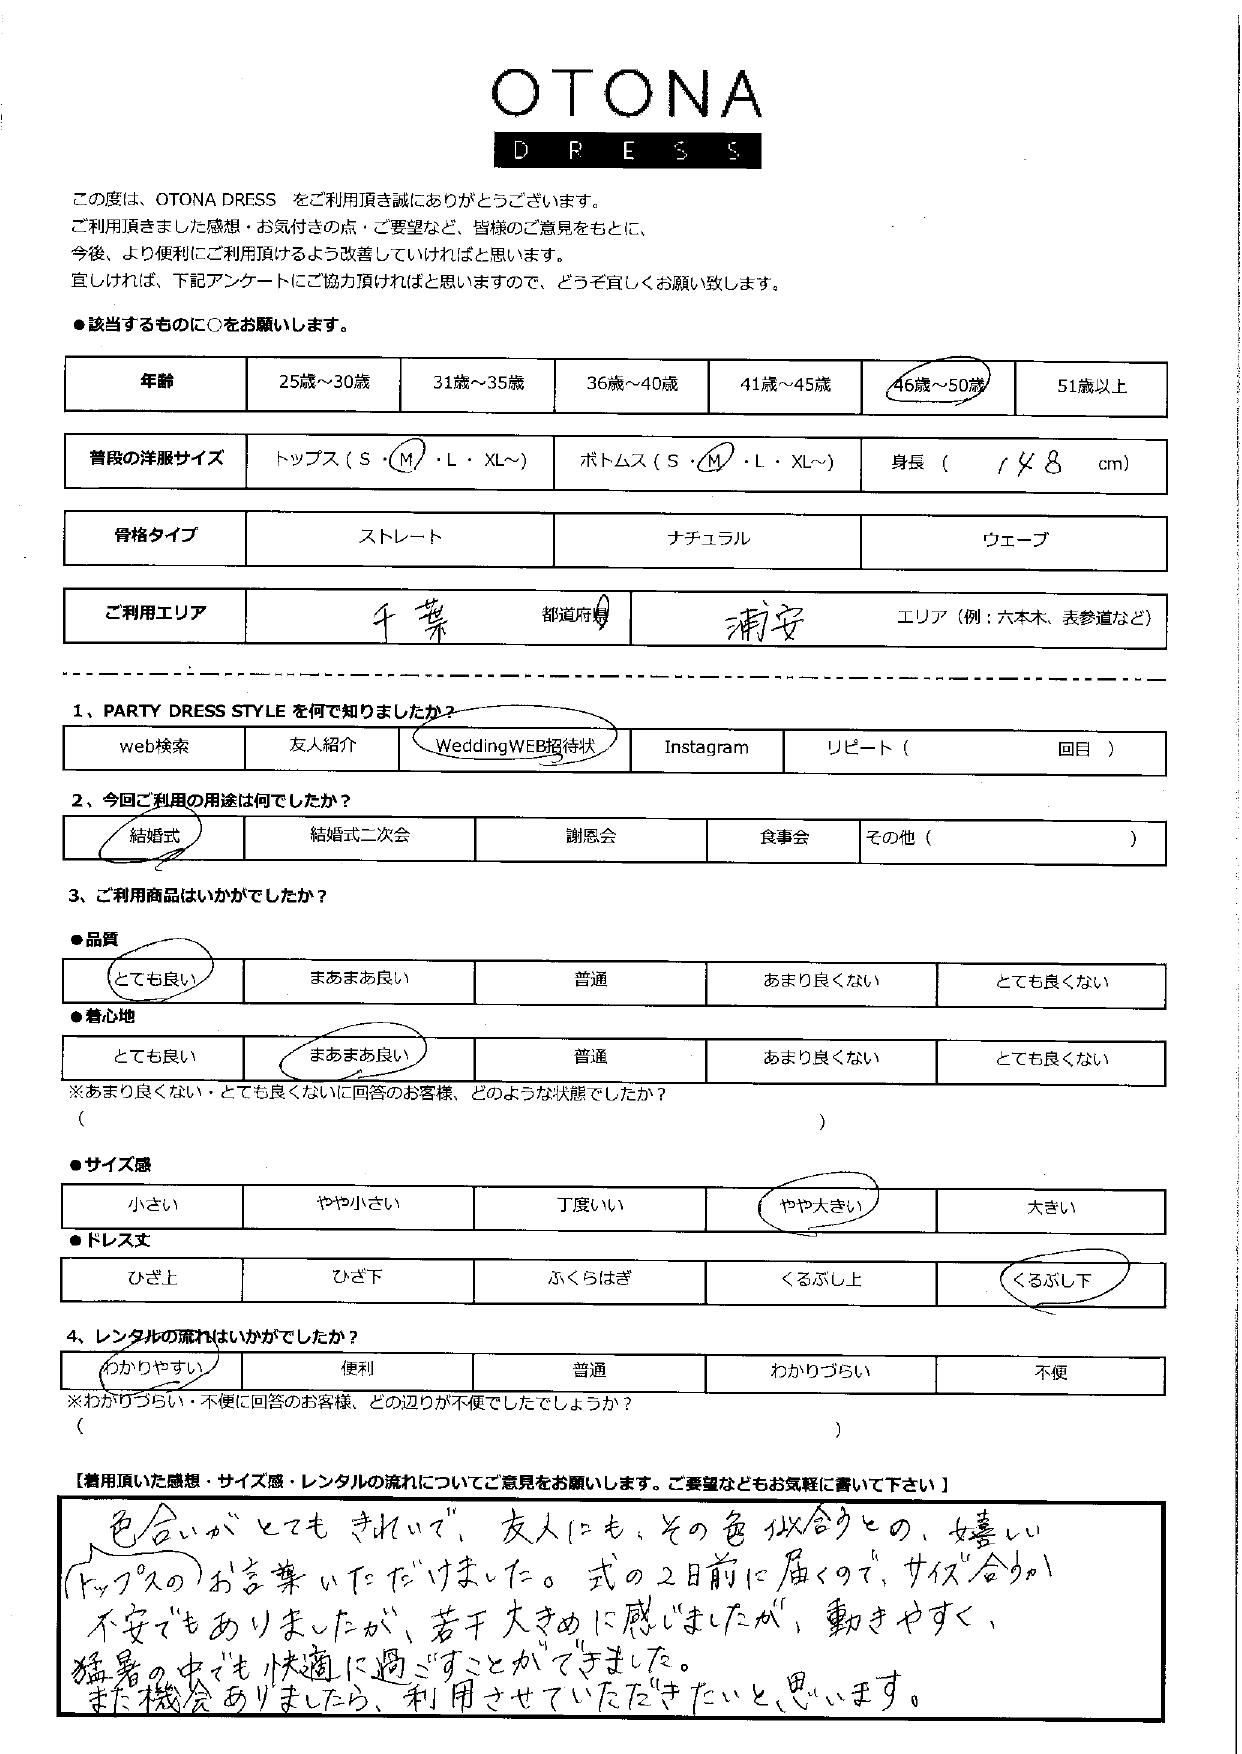 OTONA
DRESS
この度は、OTONA DRESS をご利用頂き誠にありがとうございます。
ご利用頂きました感想・お気付きの点・ご要望など、皆様のご意見をもとに、
今後、より便利にご利用頂けるよう改善していければと思います。
宜しければ、下記アンケートにご協力頂ければと思いますので、どうぞ宜しくお願い致します。
●該当するものに○をお願いします。
年齢 25歳～30歳 31歳～35歳 36歳～40歳 41歳～45歳 46歳～50歳 51歳以上
普段の洋服サイズ トップス ( S ・M ・L ・ XL～) ボトムス ( S ・M ・L ・ XL～) 身長 ( 148 cm)
骨格タイプ ストレート ナチュラル ウェーブ
ご利用エリア 千葉 都道府県 浦安 エリア（例：六本木、表参道など）
1、PARTY DRESS STYLE を何で知りましたか？
web検索 友人紹介 WeddingWEB招待状 Instagram リピート ( 回目 )
2、今回ご利用の用途は何でしたか？
結婚式 結婚式二次会 謝恩会 食事会 その他 ( )
3、ご利用商品はいかがでしたか？
●品質
とても良い まあまあ良い 普通 あまり良くない とても良くない
●着心地
とても良い まあまあ良い 普通 あまり良くない とても良くない
※あまり良くない・とても良くないに回答のお客様、どのような状態でしたか？
( )
●サイズ感
小さい やや小さい 丁度いい やや大きい 大きい
●ドレス丈
ひざ上 ひざ下 ふくらはぎ くるぶし上 くるぶし下
4、レンタルの流れはいかがでしたか？
わかりやすい 便利 普通 わかりづらい 不便
※わかりづらい・不便に回答のお客様、どの辺りが不便でしたでしょうか？
( )
【着用頂いた感想・サイズ感・レンタルの流れについてご意見をお願いします。ご要望などもお気軽に書いて下さい】
色合いがとてもきれいで、友人にも、その色似合うとの、嬉しい
(トップスの)お言葉いただけました。式の2日前に届くので、サイズ合うか
不安でもありましたが、若干大きめに感じましたが、動きやすく、
猛暑の中でも快適に過ごすことができました。
また機会ありましたら、利用させていただきたいと、思います。